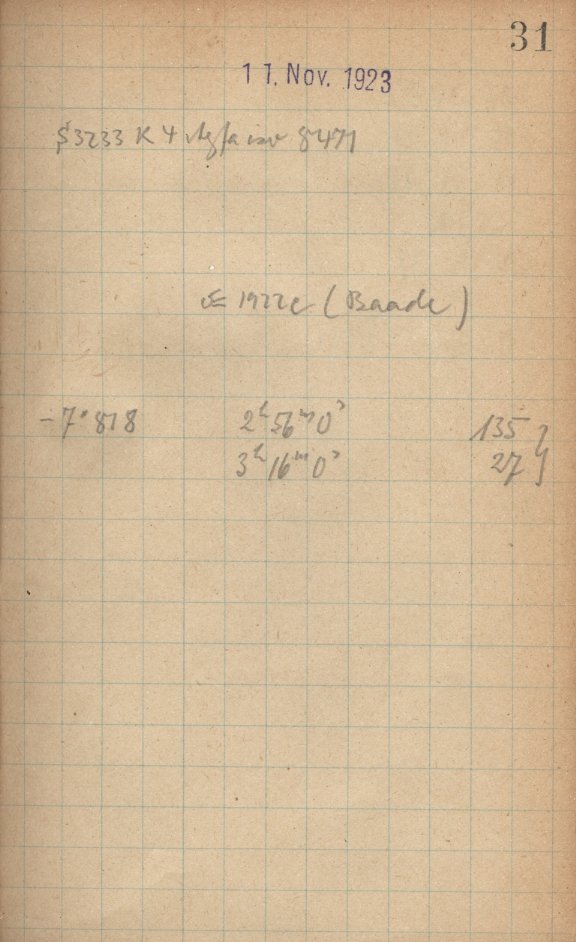 31
11. Nov. 1923
3233 K 4 Agfa iso 8471
1922c (Baade)
-7°818 2ʰ56ᵐ0ˢ 135
3ʰ16ᵐ0ˢ 27